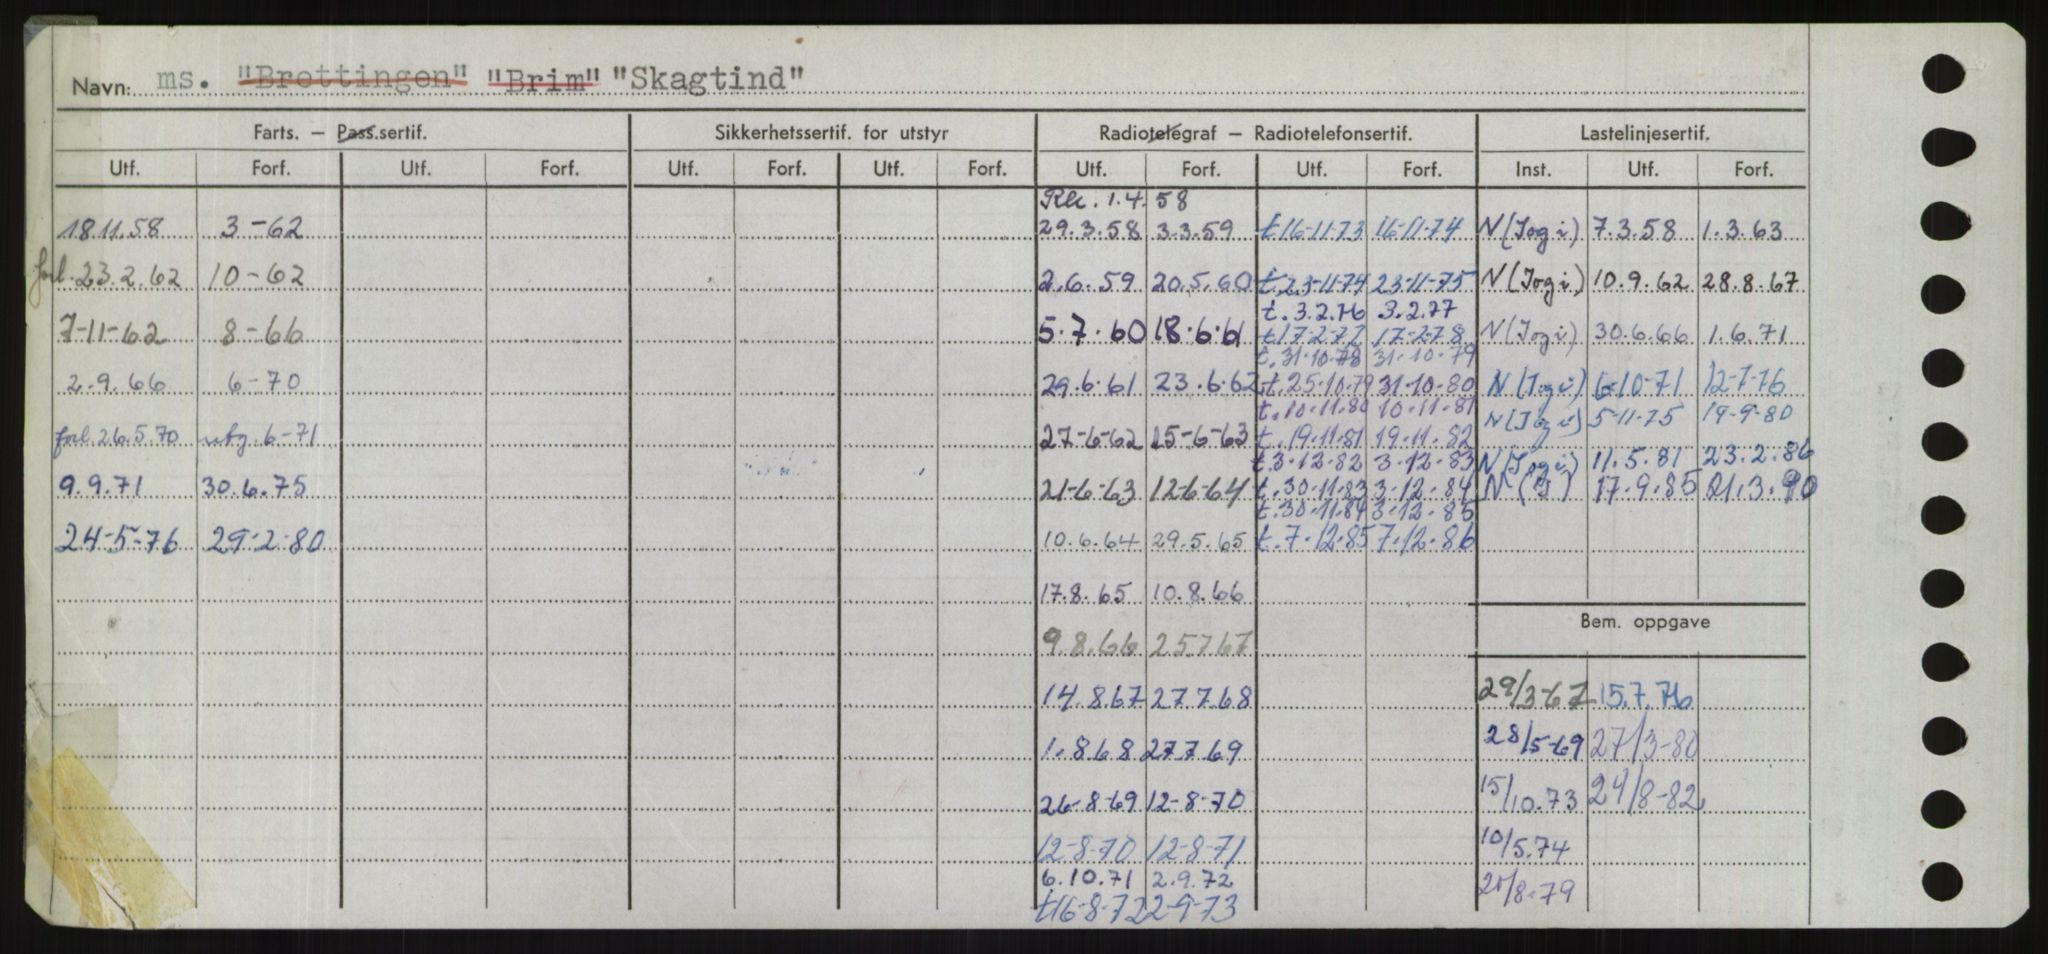 Navn: ms. "Brettingen" "Brim" "Skagtind"
Farts. – Pass.sertif. Sikkerhetssertif. for utstyr Radiotelegraf – Radiotelefonsertif. Lastelinjesertif.
Utf. Forf. Utf. Forf. Utf. Forf. Utf. Forf. Utf. Forf. Utf. Forf. Inst. Utf. Forf.
1.4.58
18.11.58 3-62 29.3.58 3.3.59 t 16-11-73 16-11-74 N (Jogi) 7.3.58 1.3.63
forl. 23.2.62 10-62 2.6.59 20.5.60 t. 23-11-74 23-11-75 N (Jogi) 10.9.62 28.8.67
t. 3.2.76 3.2.77
7-11-62 8-66 5.7.60 18.6.61 t 17-2-77 17-2-78 N (Jogi) 30.6.66 1.6.71
t. 31.10.78 31.10.79
2.9.66 6-70 29.6.61 23.6.62 t. 25.10.79 31.10.80 N (Jogi) 6-10-71 12-7-76
t. 10.11.80 10.11.81 N (Jogi) 5-11-75 19-9-80
forl. 26.5.70 utg. 6-71 27-6-62 15-6-63 t. 19.11.81 19.11.82
t. 3.12.82 3.12.83 N (Jogi) 11.5.81 23.2.86
9.9.71 30.6.75 21-6-63 12-6-64 t. 30.11.83 3.12.84 N ( ) 17.9.85 21.3.90
t. 30.11.84 3.12.85
24-5-76 29-2-80 10.6.64 29.5.65 t. 7.12.85 7.12.86
17.8.65 10.8.66
Bem. oppgave
9.8.66 25.7.67
14.8.67 27.7.68 29/3-67 15.7.76
1.8.68 27.7.69 28/5-69 27/3-80
26-8-69 12-8-70 15/10.73 24/8-82
12-8-70 12-8-71 10/5.74
6.10.71 2.9.72 21/8-79
t 16-8-72 2-9-73